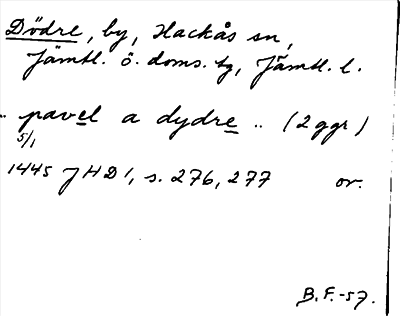 Dödre, by, Hackås sn,
Jämtl. ö. doms. tg, Jämtl. l.
.. pavel a dydre .. (2 ggr)
5/1
1445 JHD 1, s. 276, 277 or.
B. F. -57.